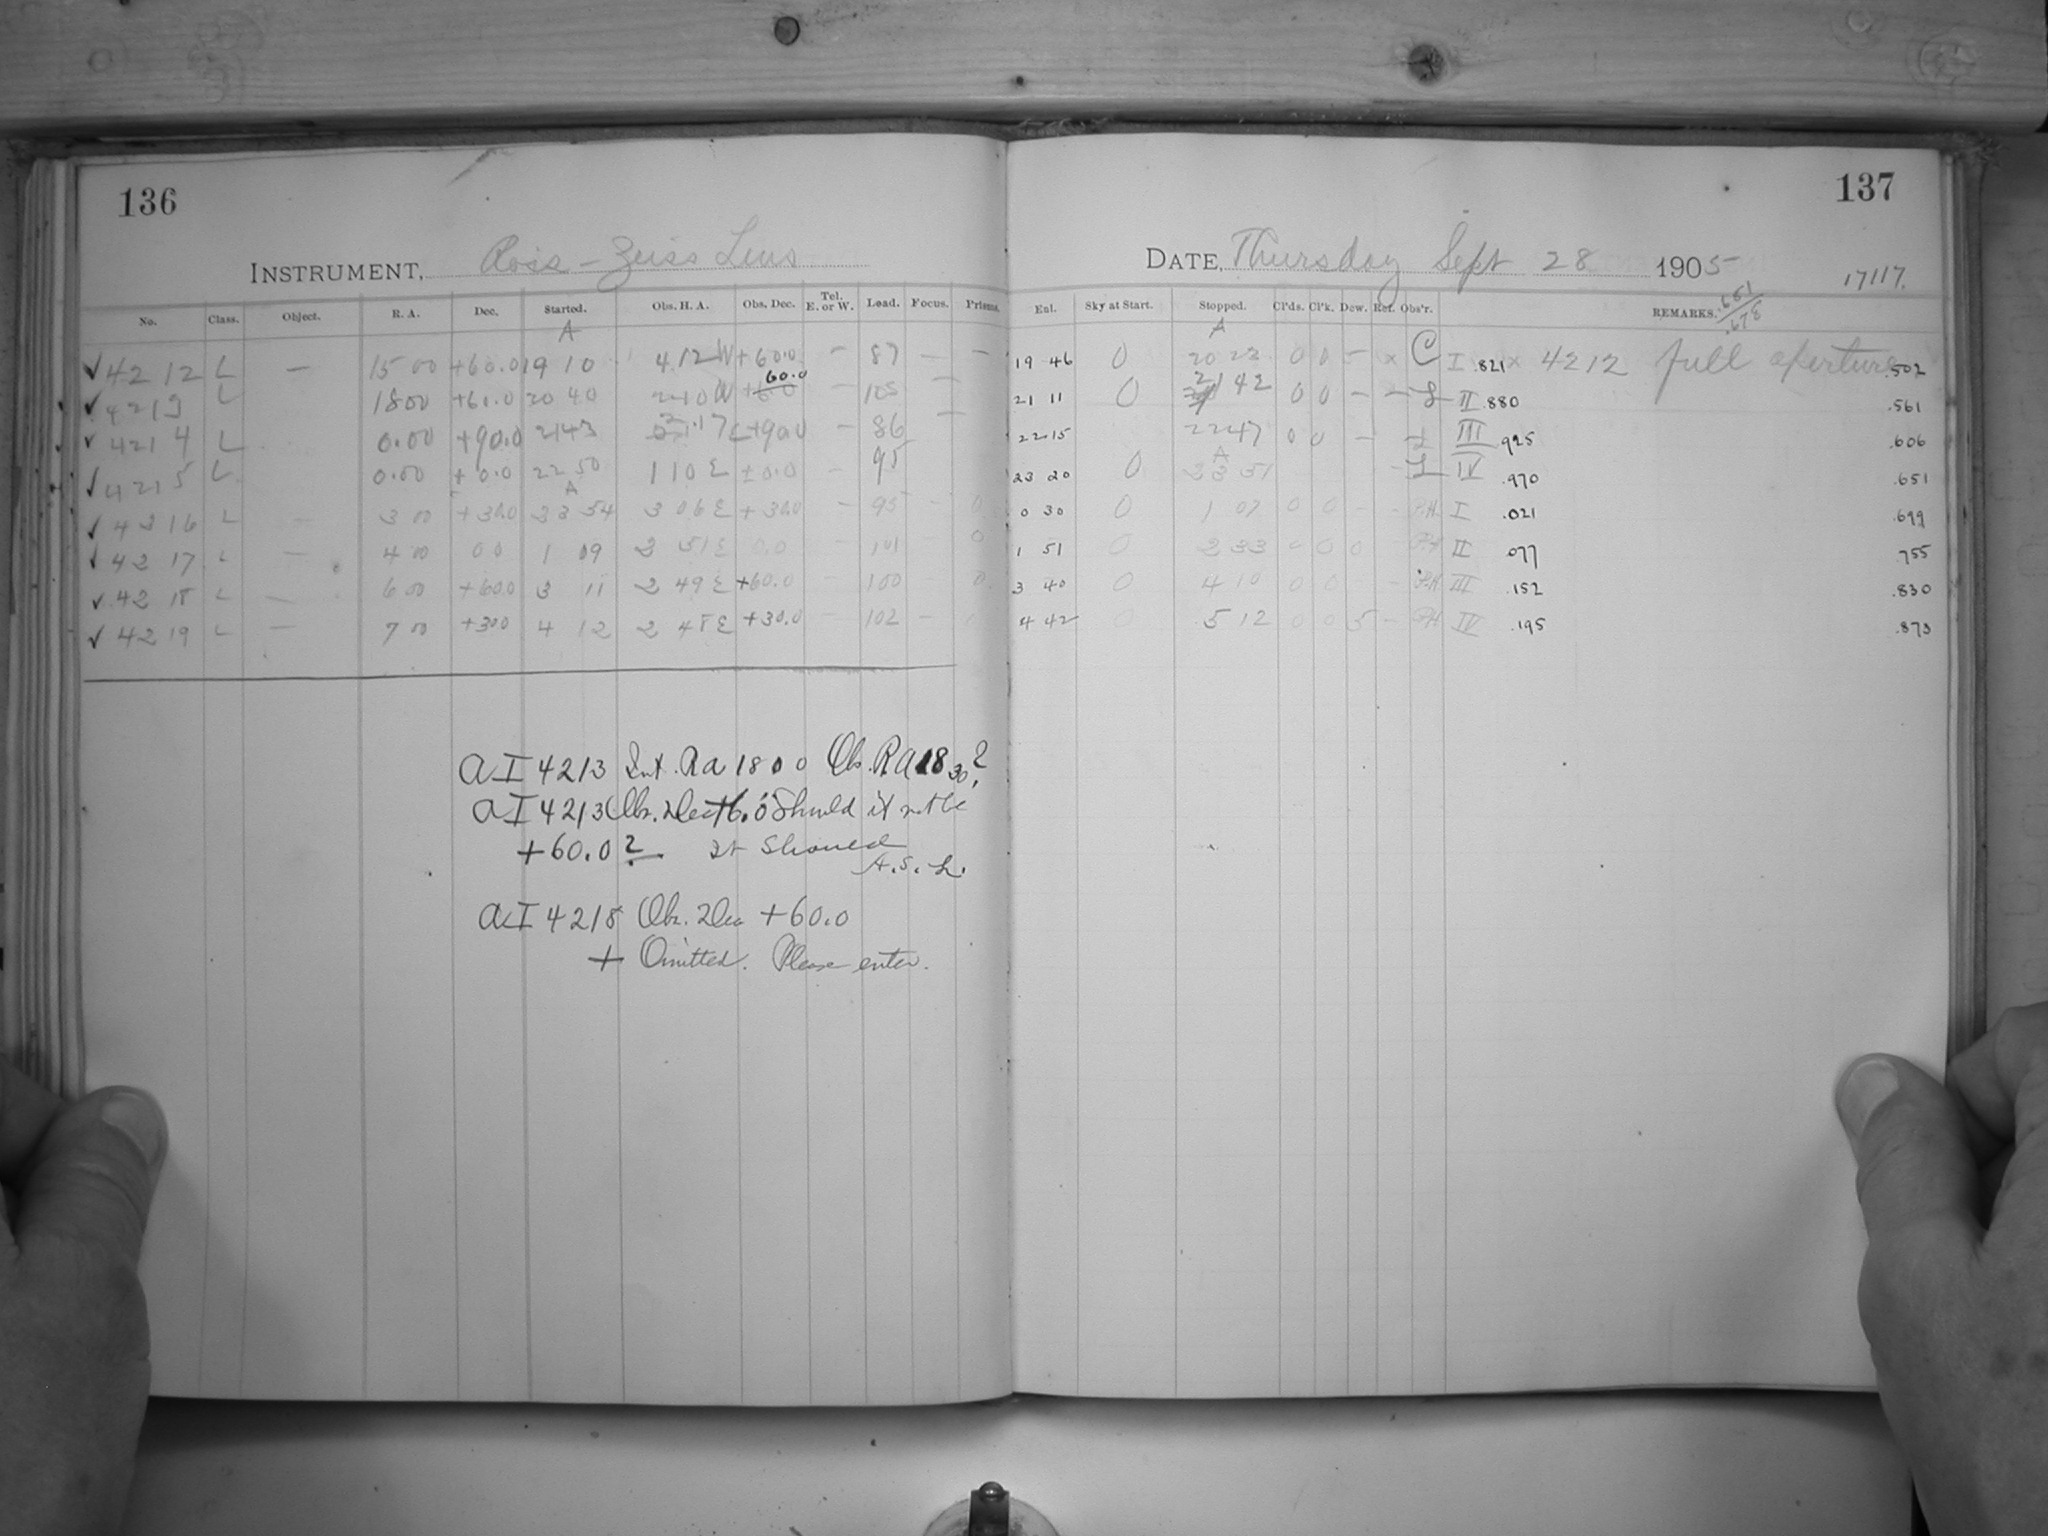 136
INSTRUMENT, Ross-Zeiss Lens
No. Class. Object. R. A. Dec. Started. Obs. H. A. Obs. Dec. Tel. E. or W. Load. Focus. Prisms.
A
✓ 42 12 L — 15 00 +60.0 19 10 4 12 W +60.0 — 87 — —
60.0
✓ 4213 L 18 00 +60.0 20 40 2 10 W — 105 —
✓ 421 4 L 0.00 +90.0 2143 17 E +90.0 — 86 —
✓ 421 5 L 0.00 +0.0 22 50 1 10 E +0.0 — 95
A
✓ 4216 L — 3 00 +30.0 23 54 3 06 E +30.0 — 95 — 0
✓ 42 17 L — 4 00 0 0 1 09 2 51 E 0.0 — 101 — 0
✓ 42 18 L — 6 00 +60.0 3 11 2 49 E +60.0 — 100 0
✓ 42 19 L — 7 00 +30.0 4 12 2 48 E +30.0 — 102 —
AI 4213 Int. Ra 18 00 Obs. RA 18 30?
AI 4213 Obs. Dec +6.0 Should it not be
+60.0? It should
A.S.L.
AI 4218 Obs. Dec +60.0
+ Omitted. Please enter.
137
DATE, Thursday Sept 28 1905
17117.
.651
.678
Enl. Sky at Start. Stopped. Cl'ds. Cl'k. Dew. Ref. Obs'r. REMARKS.
A
19 46 0 20 23 0 0 — x C I .821 x 4212 full aperture .502
21 11 0 21 42 0 0 — — L II .880 .561
22 15 2247 0 0 — — L III .925 .606
A
23 20 0 23 51 — L IV .970 .651
0 30 0 1 07 0 0 — — P.H. I .021 .699
1 51 0 2 33 0 0 0 P.H. II .077 .755
3 40 0 4 10 0 0 — P.H. III .152 .830
4 42 0 5 12 0 0 5 — P.H. IV .195 .873